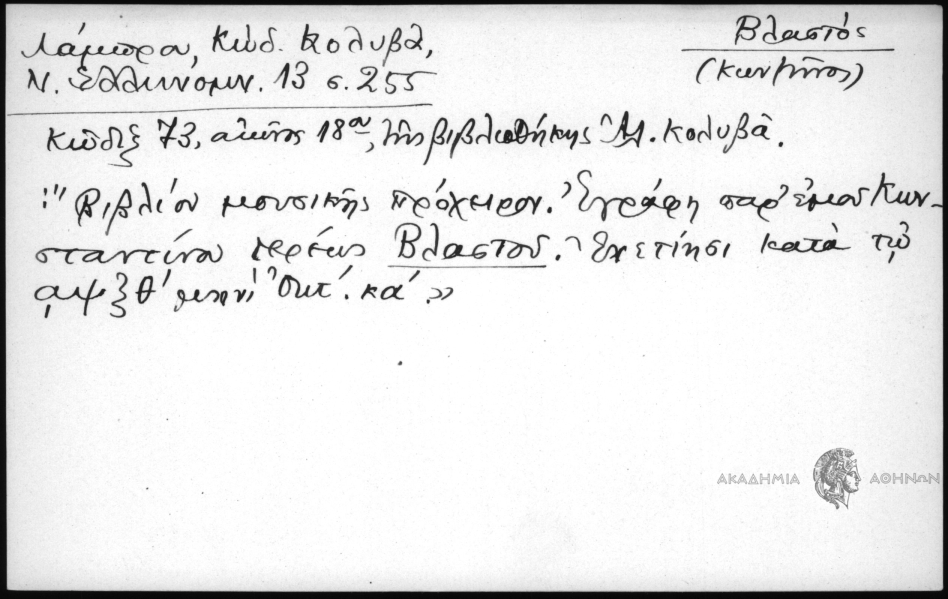 Λάμπρου, Κώδ. Κολυβᾶ,
Ν. Ἑλληνομν. 13 σ. 255
Βλαστός
(Κων/τῖνος)
Κῶδιξ 73, αἰῶνος 18ου, τῆς βιβλιοθήκης Ἀλ. Κολυβᾶ.
"Βιβλίον μουσικῆς πρόχειρον. Ἐγράφη παρ' ἐμοῦ Κων-
σταντίνου ἱερέως Βλαστοῦ. Ἐν ἔτει κατὰ τῷ
͵αψξθ' μηνὶ Ὀκτ. κα'.»
ΑΚΑΔΗΜΙΑ ΑΘΗΝΩΝ